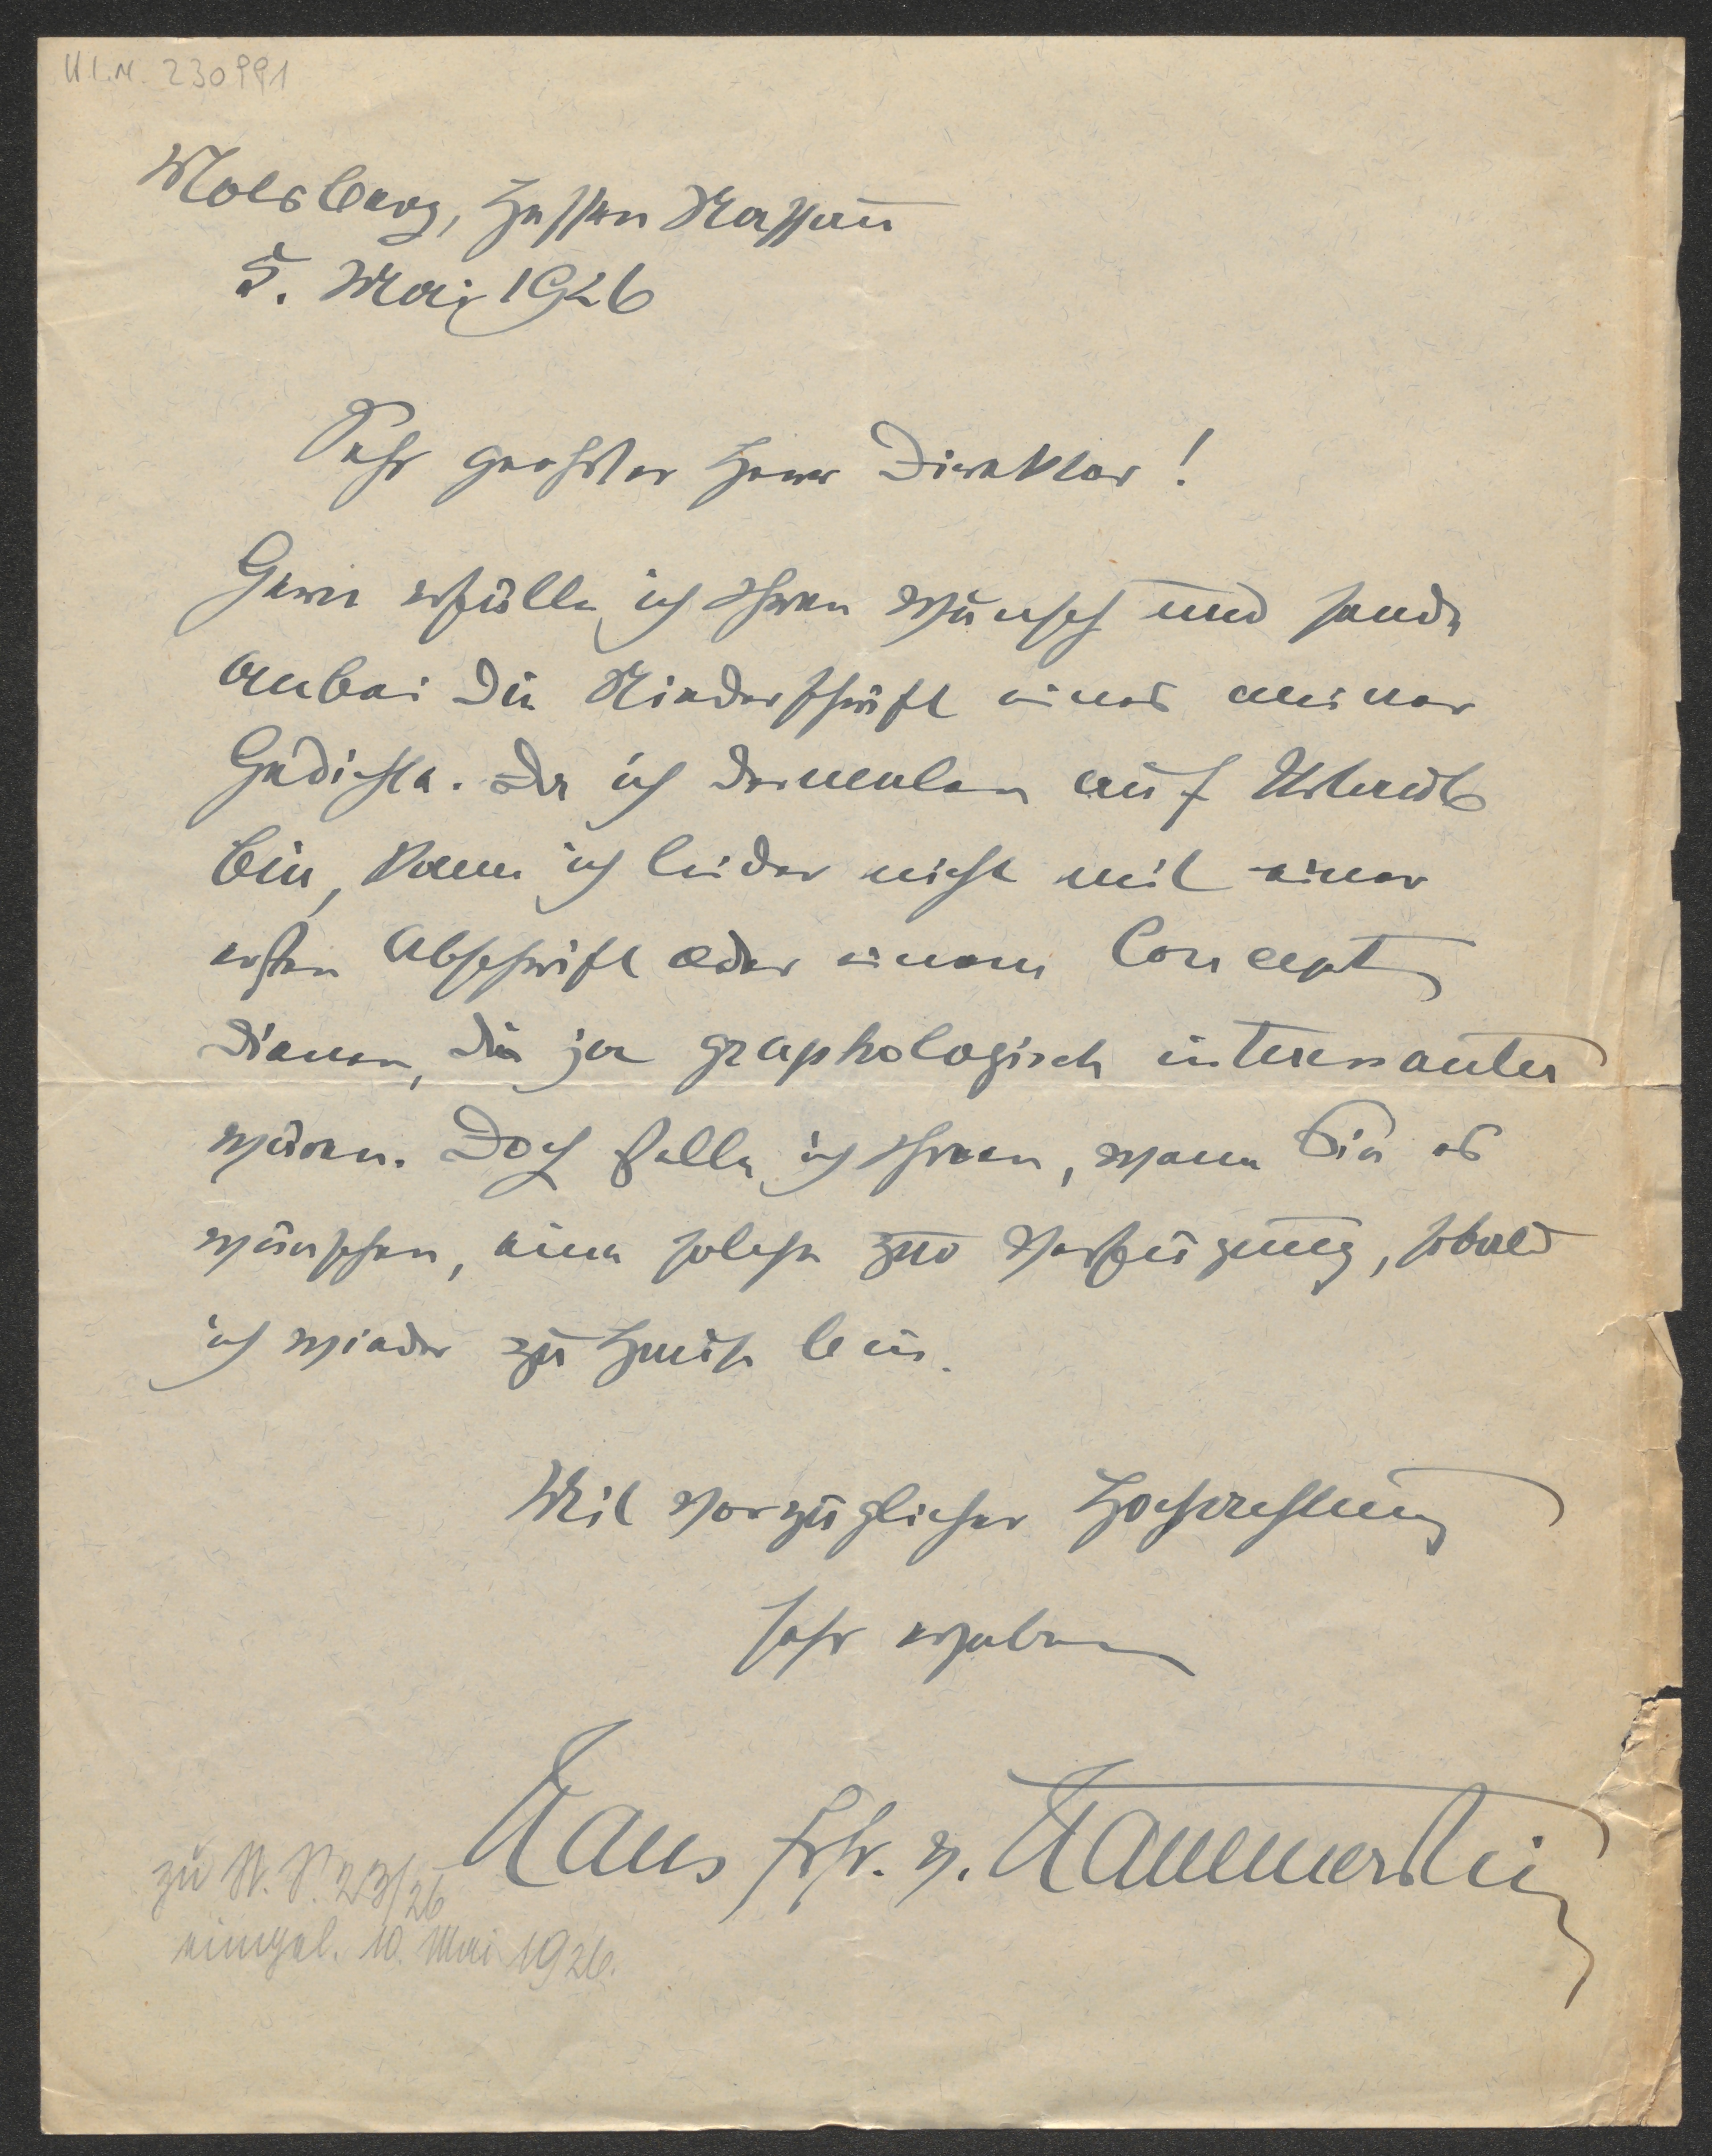 U I.N. 230991
Molsberg, Hessen Nassau
5. Mai 1926
Sehr geehrter Herr Direktor!
Gerne erfülle ich Ihren Wunsch und sende
anbei die Niederschrift eines meiner
Gedichte. Da ich dermalen auf Urlaub
bin, kann ich leider nicht mit einer
ersten Abschrift oder einem Concept
dienen, die ja graphologisch interessanter
wären. Doch stelle ich Ihnen, wenn Sie es
wünschen, eine solche zur Verfügung, sobald
ich wieder zu Hause bin.
Mit vorzüglicher Hochachtung
sehr ergeben
Hans Frh. v. Hammerstein
zu N. P. 23/26
eingel. 10. Mai 1926.